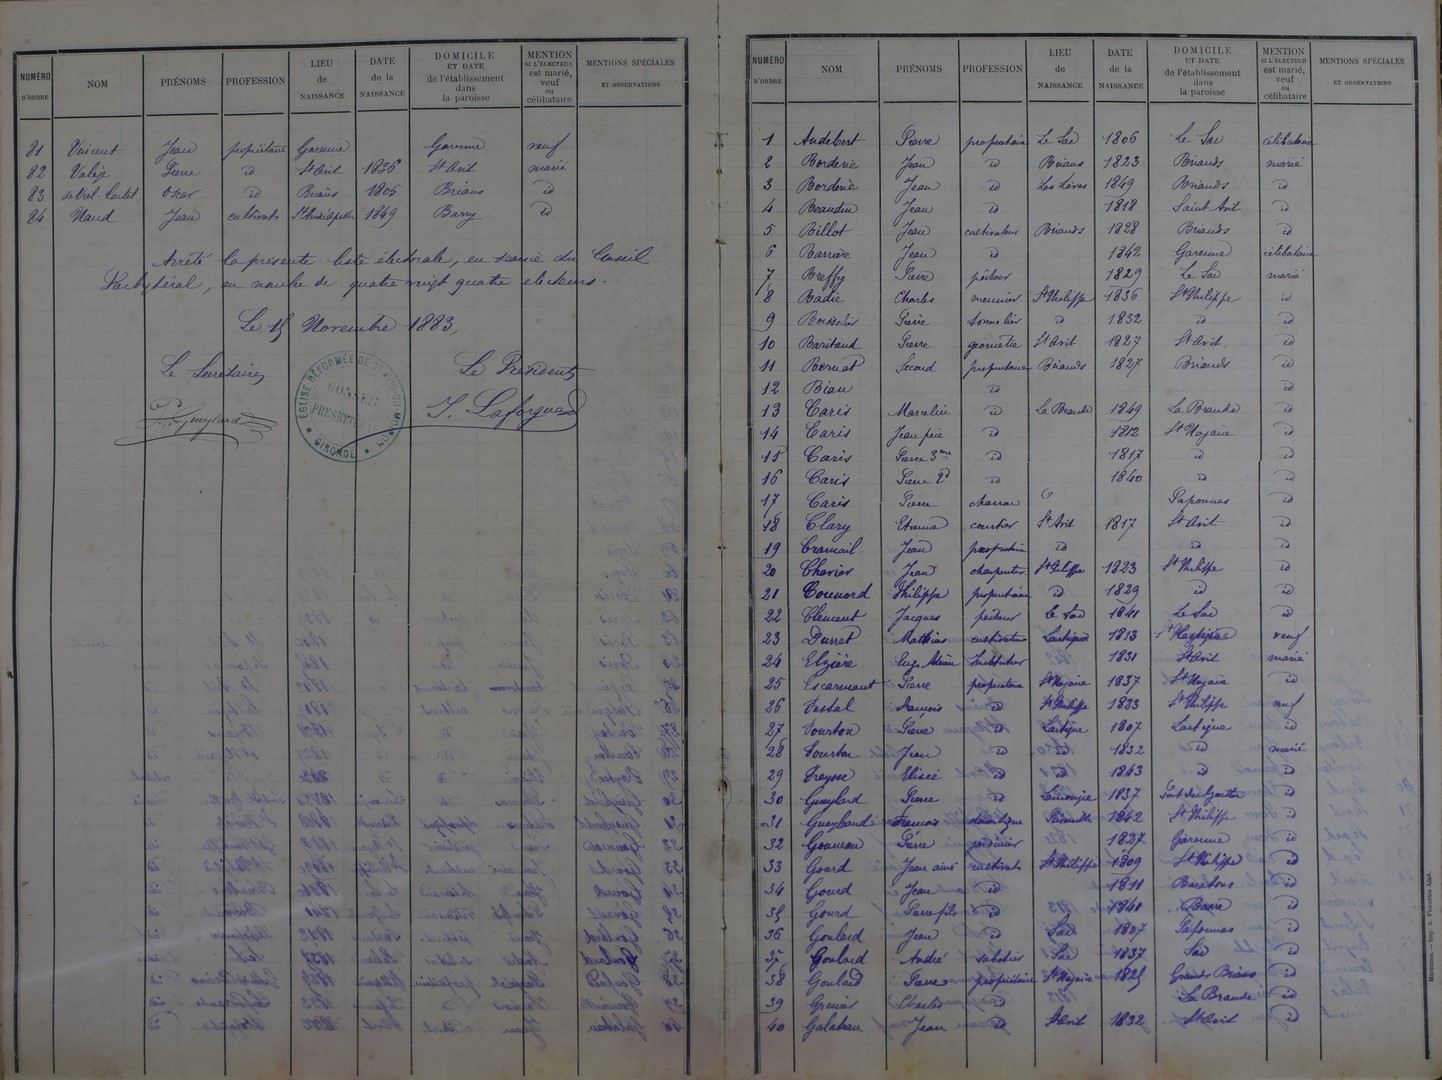 NUMÉRO D'ORDRE NOM PRÉNOMS PROFESSION LIEU de NAISSANCE DATE de la NAISSANCE DOMICILE ET DATE de l'établissement dans la paroisse MENTION SI L'ÉLECTEUR est marié, veuf ou célibataire MENTIONS SPÉCIALES ET OBSERVATIONS
81 Vincent Jean propriétaire Garenne Garenne veuf
82 Pierre id St Avit 1836 St Avit marié
83 Oscar id Brians 1806 Brians id
84 Naud Jean 1849 Barry id
Arrêté la présente liste électorale, en séance du Conseil
Presbytéral, au nombre de quatre vingt quatre électeurs.
Le 15 Novembre 1883,
Le Secrétaire Le Président
P. Gueylard J. Laforgue
ÉGLISE RÉFORMÉE DE CONSEIL PRESBYTÉRAL GIRONDE
NUMÉRO D'ORDRE NOM PRÉNOMS PROFESSION LIEU de NAISSANCE DATE de la NAISSANCE DOMICILE ET DATE de l'établissement dans la paroisse MENTION SI L'ÉLECTEUR est marié, veuf ou célibataire MENTIONS SPÉCIALES ET OBSERVATIONS
1 Audebert Pierre propriétaire Le Sac 1806 Le Sac célibataire
2 Borderie Jean id Brians 1823 Briands marié
3 Borderie Jean id Les Lèves 1849 Briands id
4 Beaudin Jean id 1818 Saint Avit id
5 Billot Jean cultivateur Briands 1828 Briands id
6 Barrière Jean id 1842 Garenne célibataire
7 Breffy Pierre pêcheur 1829 Le Sac marié
8 Badie Charles meunier St Philippe 1836 St Philippe id
9 Pierre tonnelier id 1832 id id
10 Baritaud Pierre géomètre St Avit 1827 St Avit id
11 Bernat Second propriétaire Briands 1827 Briands id
12 Biau id id
13 Caris Marcelin id La Beaude 1849 La Beaude id
14 Caris Jean père id 1812 St Nazaire id
15 Caris Pierre 3me id 1817 id id
16 Caris Pierre 2d id 1840 id id
17 Caris Pierre charron Paponnes id
18 Clary Etienne courtier St Avit 1817 St Avit id
19 Cramail Jean propriétaire id id id
20 Charier Jean charpentier St Philippe 1823 St Philippe id
21 Counord Philippe propriétaire id 1829 id id
22 Clément Jacques pêcheur Le Sac 1841 Le Sac id
23 Durret Mathias cultivateur Lartigue 1813 veuf
24 Elzière Instituteur 1831 St Avit marié
25 Escarmant Pierre propriétaire St Nazaire 1837 St Nazaire id
26 François id St Philippe 1833 St Philippe veuf
27 Fourton Pierre id Lartigue 1807 Lartigue id
28 Fourton Jean id id 1832 id marié
29 Freysse Elisée id id 1843 id id
30 Gueylard Pierre id Lamouzie 1837 id
31 Gueylaud François domestique 1842 St Philippe id
32 Gouneau Pierre jardinier 1827 Garenne id
33 Gourd Jean ainé cultivat. St Philippe 1809 St Philippe id
34 Gourd Jean id 1811 id
35 Gourd Pierre fils id 1841 id
36 Goulard Jean id Sac 1807 Paponnes id
37 Goulard André sabotier Sac 1837 Sac id
38 Goulard Pierre propriétaire St Nazaire 1825 Grands Brians id
39 Grenier Charles id La Beaude id
40 Galateau Jean id St Avit 1832 St Avit id